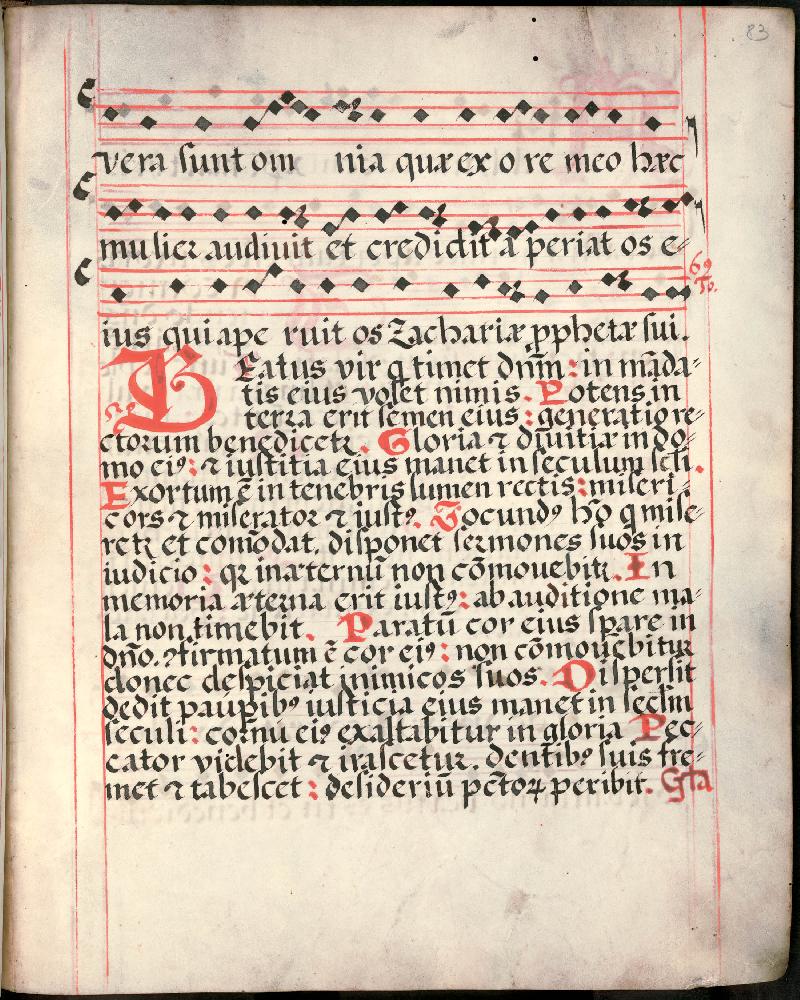 83
vera sunt om nia quæ ex o re meo hæc
mulier audiuit et credidit a periat os e-
69
To.
ius qui ape ruit os Zachariæ pphetæ sui.
Beatus vir q timet dnm: in mãda-
tis eius volet nimis. Potens in
terra erit semen eius: generatio re-
ctorum benedicetꝛ. Gloria ⁊ diuitiæ in do-
mo eiꝰ: ⁊ iustitia eius manet in seculum scli.
Exortum ẽ in tenebris lumen rectis: miseri-
cors ⁊ miserator ⁊ iustꝰ. Jocundꝰ hõ q mise-
retꝛ et comõdat, disponet sermones suos in
iudicio: qꝛ in æternũ non cõmouebitꝛ. In
memoria æterna erit iustꝰ: ab auditione ma-
la non timebit. Paratũ cor eius spare in
dño, ꝯfirmatum ẽ cor eiꝰ: non cõmouebitur
donec despiciat inimicos suos. Dispersit
dedit paupibꝰ iusticia eius manet in seclm
seculi: cornu eiꝰ exaltabitur in gloria Pec-
cator videbit ⁊ irascetur, dentibꝰ suis fre-
met ⁊ tabescet: desideriũ pctoꝝ peribit. Gľa